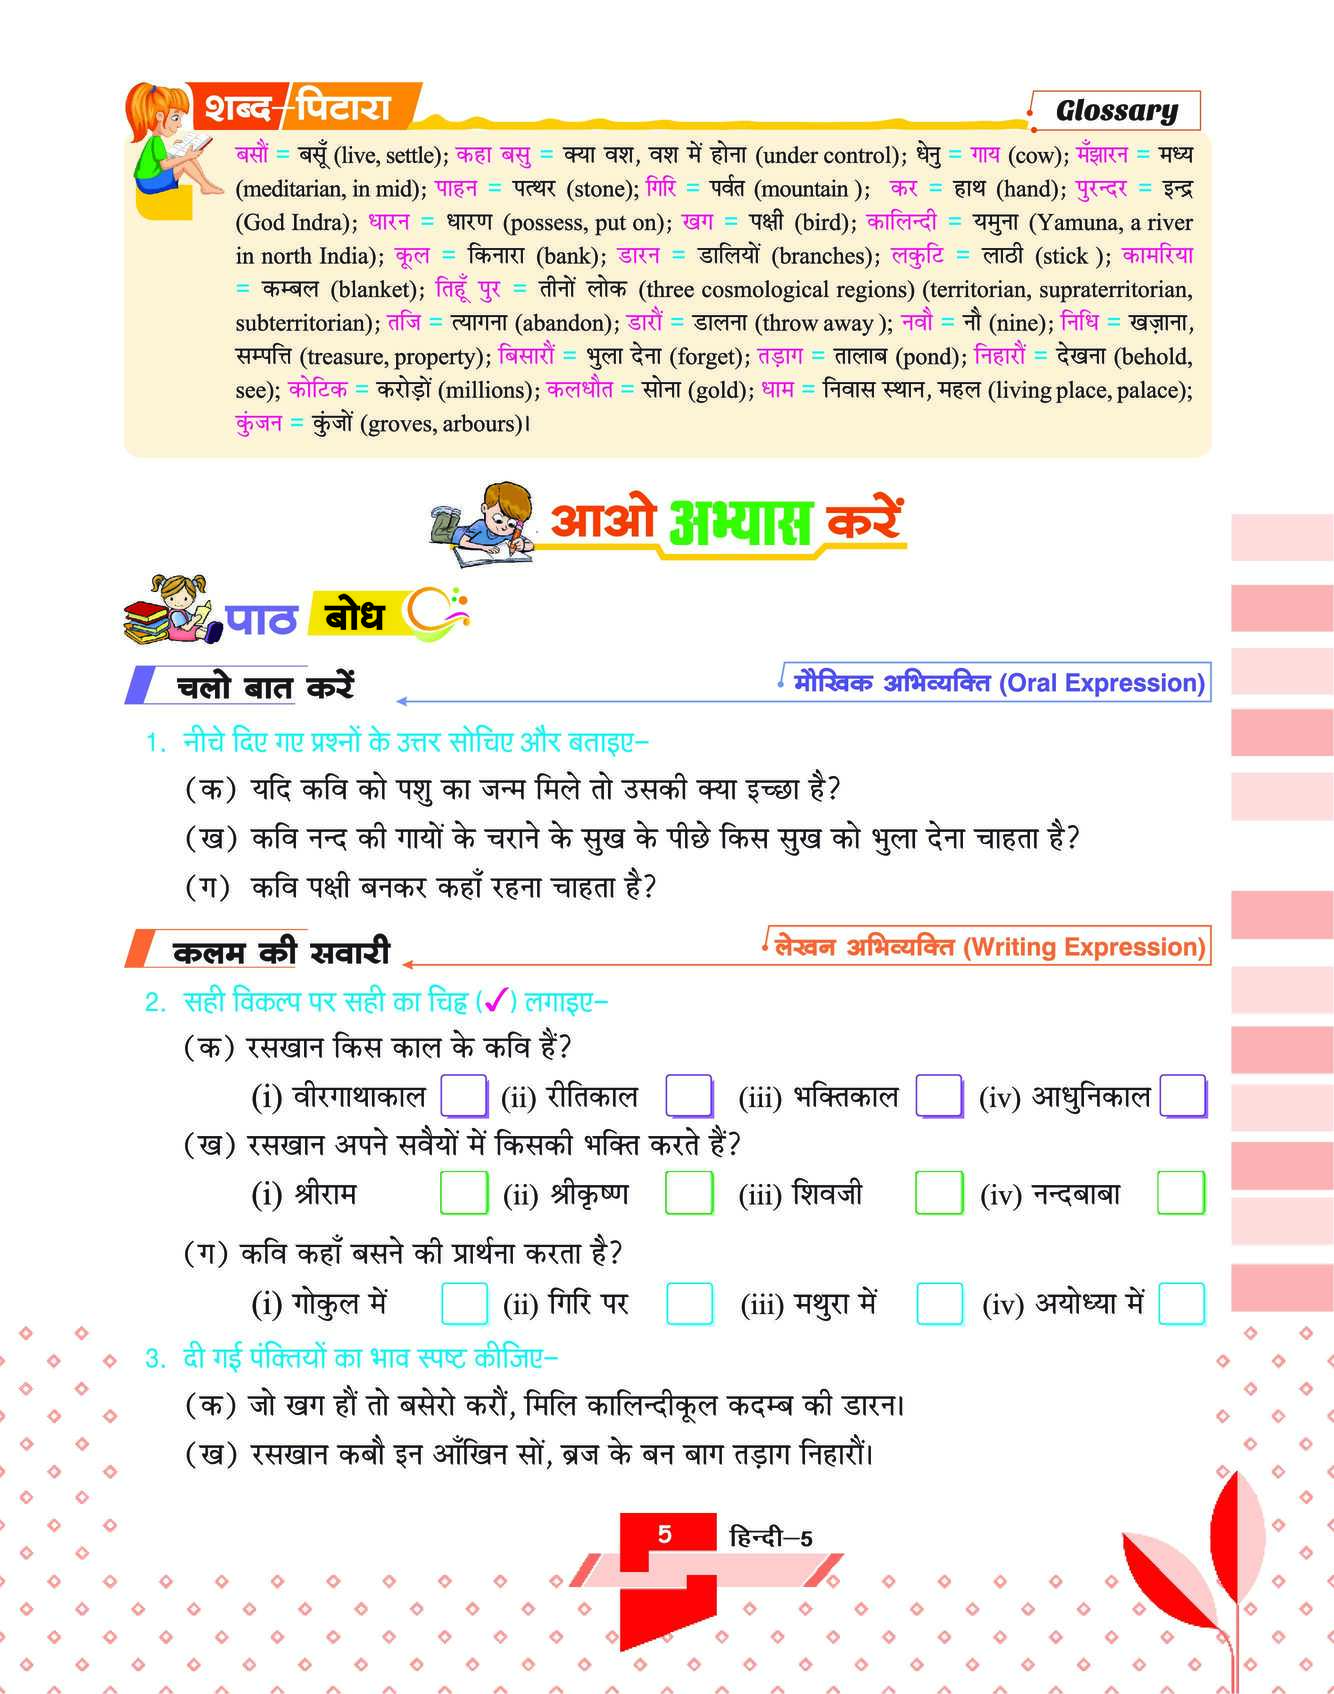 शब्द–पिटारा
Glossary
बसौं = बसूँ (live, settle); कहा बसु = क्या वश, वश में होना (under control); धेनु = गाय (cow); मँझारन = मध्य
(meditarian, in mid); पाहन = पत्थर (stone); गिरि = पर्वत (mountain ); कर = हाथ (hand); पुरन्दर = इन्द्र
(God Indra); धारन = धारण (possess, put on); खग = पक्षी (bird); कालिन्दी = यमुना (Yamuna, a river
in north India); कूल = किनारा (bank); डारन = डालियों (branches); लकुटि = लाठी (stick ); कामरिया
= कम्बल (blanket); तिहूँ पुर = तीनों लोक (three cosmological regions) (territorian, supraterritorian,
subterritorian); तजि = त्यागना (abandon); डारौं = डालना (throw away ); नवौ = नौ (nine); निधि = खज़ाना,
सम्पत्ति (treasure, property); बिसारौं = भुला देना (forget); तड़ाग = तालाब (pond); निहारौं = देखना (behold,
see); कोटिक = करोड़ों (millions); कलधौत = सोना (gold); धाम = निवास स्थान, महल (living place, palace);
कुंजन = कुंजों (groves, arbours)।
आओ अभ्यास करें
पाठ बोध
चलो बात करें
मौखिक अभिव्यक्ति (Oral Expression)
1. नीचे दिए गए प्रश्नों के उत्तर सोचिए और बताइए–
(क) यदि कवि को पशु का जन्म मिले तो उसकी क्या इच्छा है?
(ख) कवि नन्द की गायों के चराने के सुख के पीछे किस सुख को भुला देना चाहता है?
(ग) कवि पक्षी बनकर कहाँ रहना चाहता है?
कलम की सवारी
लेखन अभिव्यक्ति (Writing Expression)
2. सही विकल्प पर सही का चिह्न (✓) लगाइए–
(क) रसखान किस काल के कवि हैं?
(i) वीरगाथाकाल (ii) रीतिकाल (iii) भक्तिकाल (iv) आधुनिकाल
(ख) रसखान अपने सवैयों में किसकी भक्ति करते हैं?
(i) श्रीराम (ii) श्रीकृष्ण (iii) शिवजी (iv) नन्दबाबा
(ग) कवि कहाँ बसने की प्रार्थना करता है?
(i) गोकुल में (ii) गिरि पर (iii) मथुरा में (iv) अयोध्या में
3. दी गई पंक्तियों का भाव स्पष्ट कीजिए–
(क) जो खग हौं तो बसेरो करौं, मिलि कालिन्दीकूल कदम्ब की डारन।
(ख) रसखान कबौ इन आँखिन सों, ब्रज के बन बाग तड़ाग निहारौं।
5 हिन्दी–5